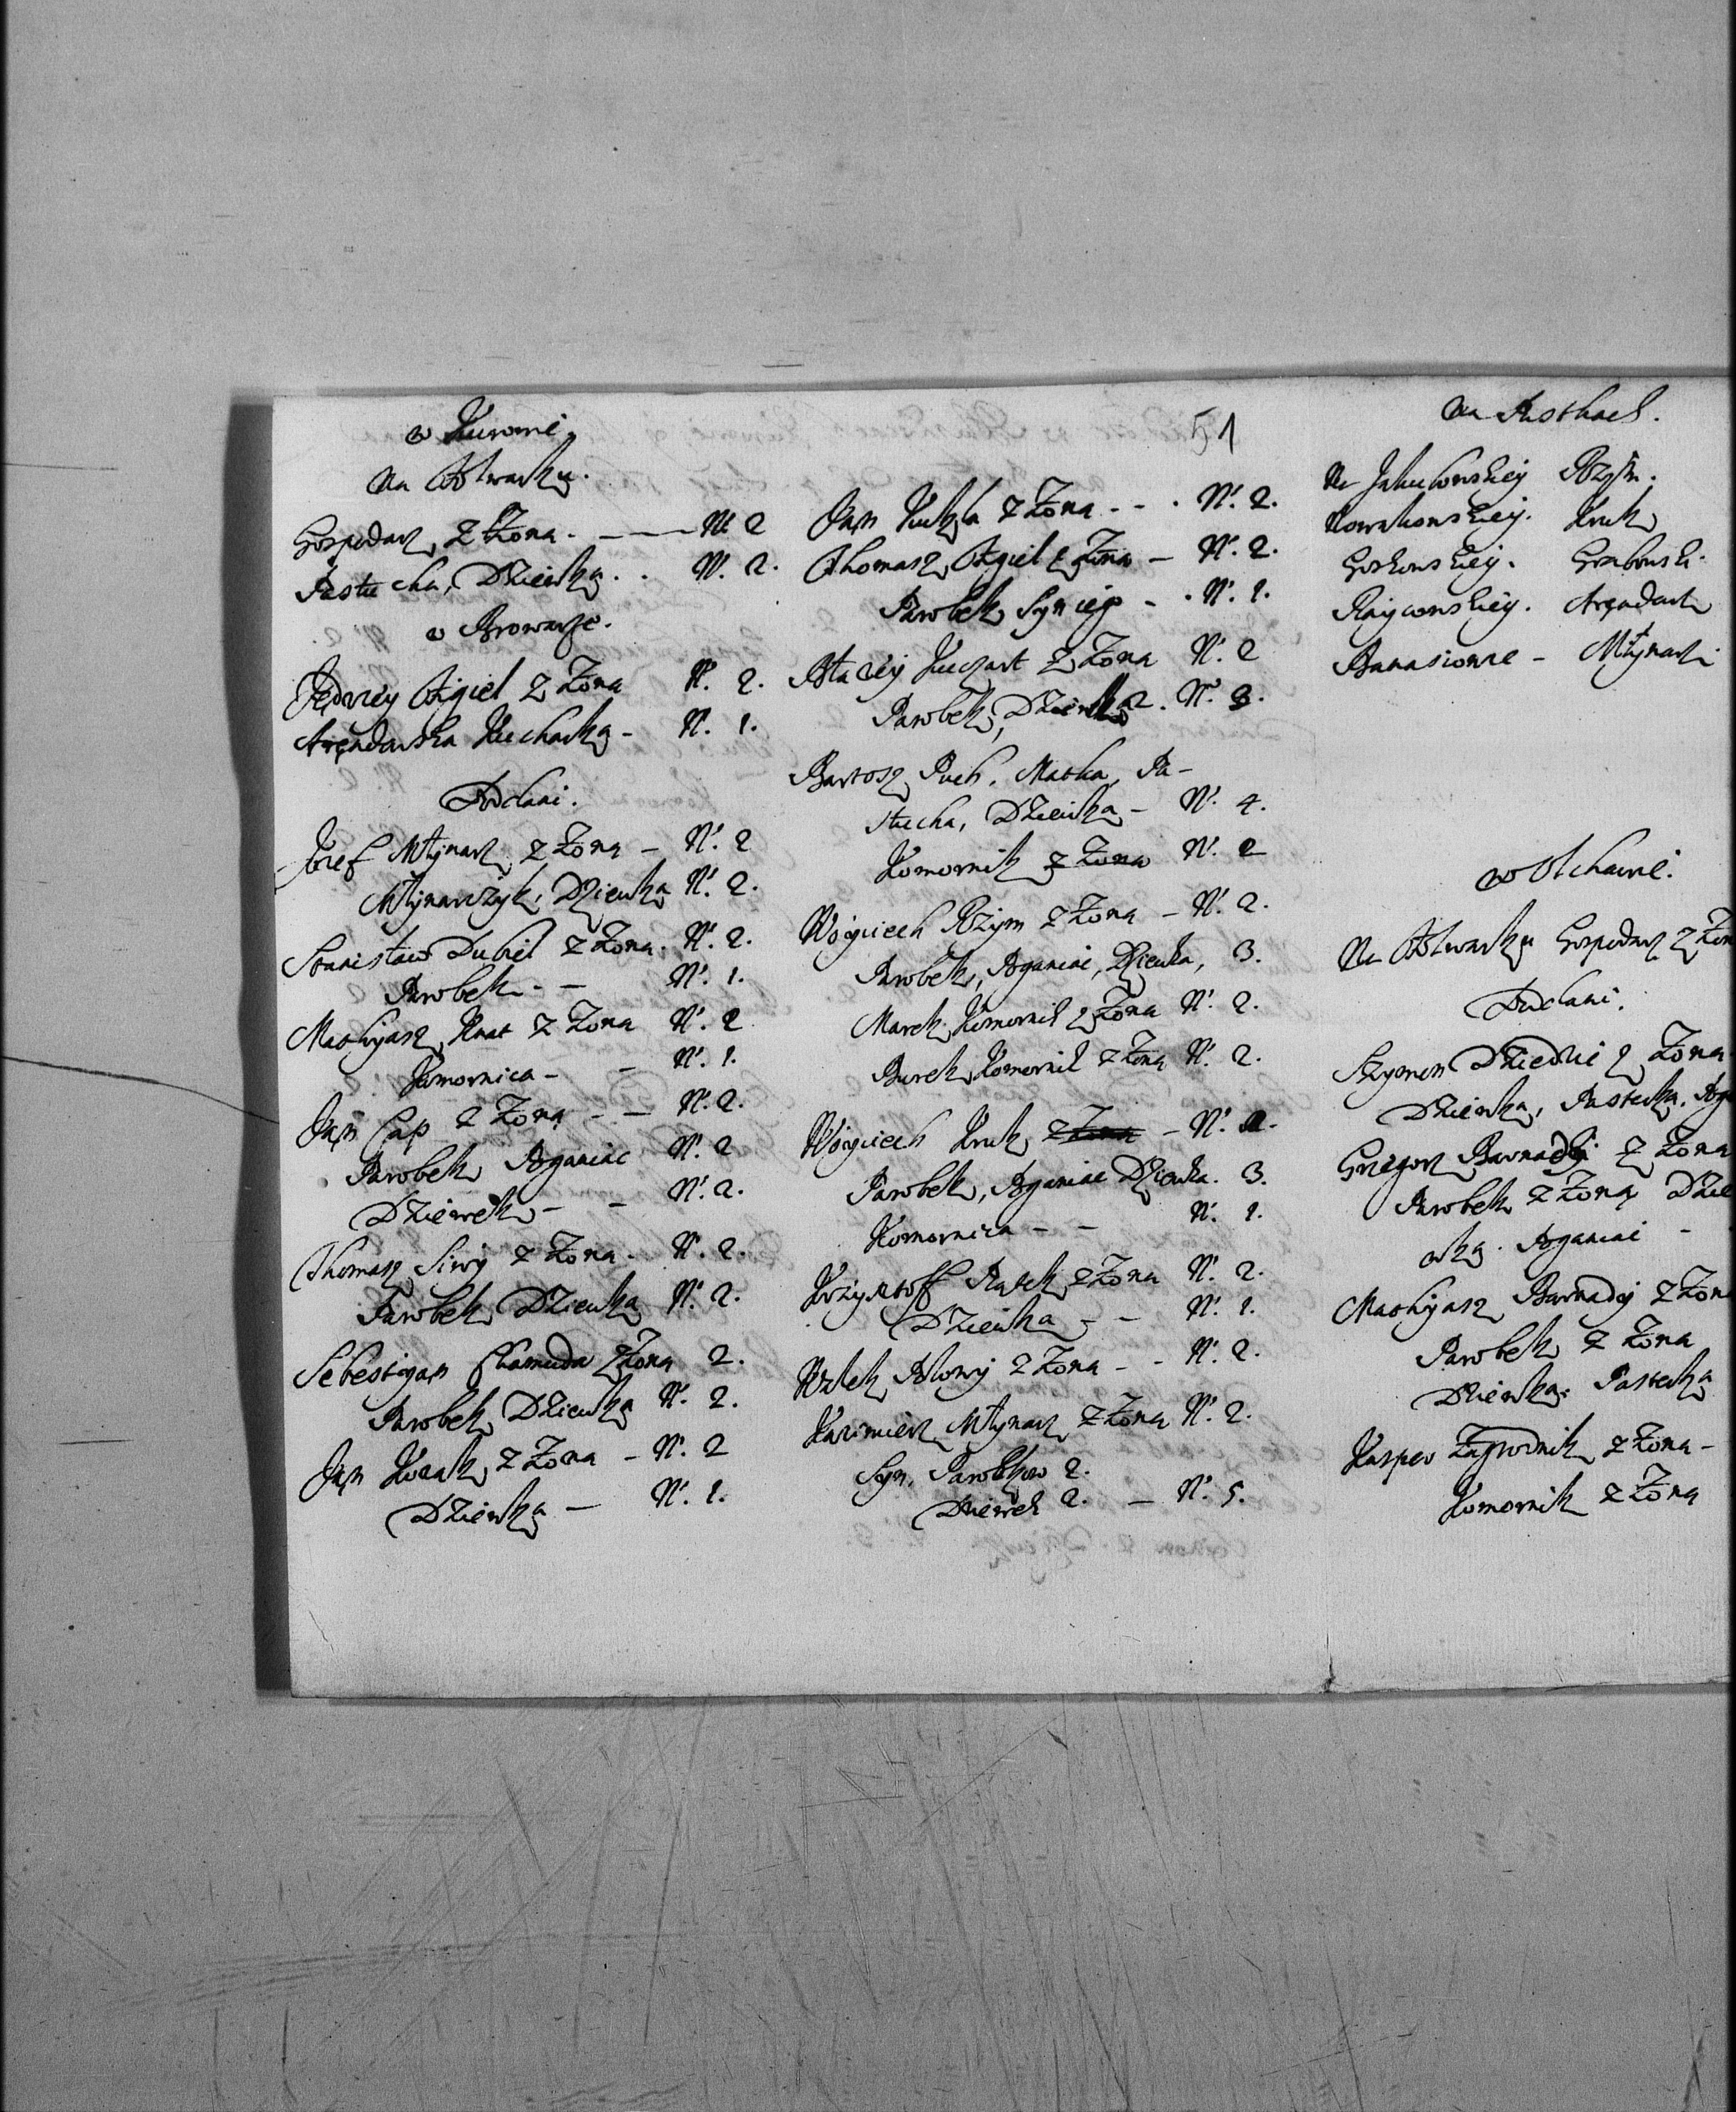 w Kurowie
na Folwarku.
Gospodarz z Żona. — N. 2
Pastucha, Dziewka . . N. 2.
w Browarze.
Jędrzey Ożgiel z Żona N. 2.
Arędarska Kucharka - N. 1.
Poddani.
Jozef Młynarz z Żona - N. 2
Młynarczyk, Dziewka N. 2.
Stanisław Dubiel z Żona. N. 2.
Parobek - - N. 1.
Mathyasz Knat z Żona N. 2
Komornica - - N. 1.
Jan Cap z Żona - - N. 2.
Parobek Poganiac N. 2
Dziewek - - N. 2.
Thomasz Siwy z Żona - N. 2.
Parobek Dziewka N. 2.
Sebestiyan Chamuda z Żona 2.
Parobek Dziewka N. 2.
Jan Kozak z Żona - N. 2
Dziewka - N. 1.
51
Jan Kukla z Żona - - . N. 2.
Thomasz Ożgiel z Żona - N. 2.
Parobek Syn iego - . N. 1.
Błazey Kuczart z Żona N. 2
Parobek, Dziewka 2. N. 3.
Bartosz Puch, Matka, Pa-
stucha, Dziewka - N. 4.
Komornik z Żona N. 2
Woyciech Rzym z Żona - N. 2.
Parobek, Poganiac, Dziewka, 3.
Marek Komornik z Żona N. 2.
Burek Komornik z Żona N. 2.
Woyciech Kruk z Żona - N.
Parobek, Poganiac Dziewka. 3.
Komornica - - N. 1.
Krzysztoff Pasek z Żona N. 2.
Dziewka - - N. 1.
Polowy z Żona - - N. 2.
Kazimierz Młynarz z Żona N. 2.
Syn, Parobkow 2.
Dziewek 2. - N. 5.
na Pustkach.
Na Jakubowskiey Rzym.
Nowakowskiey. Kruk
Gorkowskiey. Grabowski
Raycowskiey. Arędarz
Banasiowce - Młynarz
w Olchawie.
Na Folwarku Gospodarz z Żon
Poddani.
Szymon Dziedzic z Żona
Dziewka, Pasterka, Poga
Grzegorz Barnadyi z Żona
Parobek z Żona Dzie
wka. Poganiac -
Mathyasz Barnadyi z Żon
Parobek z Żona
Dziewka. Pasterka
Kasper Zagrodnik z Żona -
Komornik z Żona